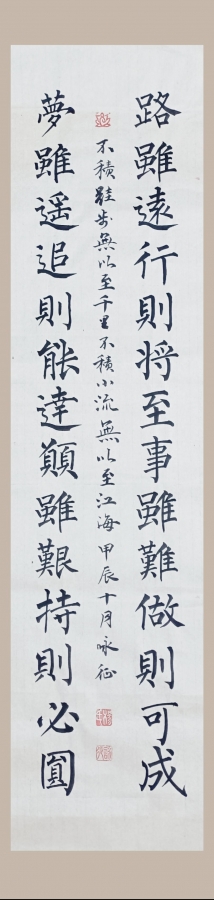 路雖遠行則將至事雖難做則可成
夢雖遙追則能達願雖艱持則必圓
不積跬步無以至千里不積小流無以至江海甲辰十月咏征